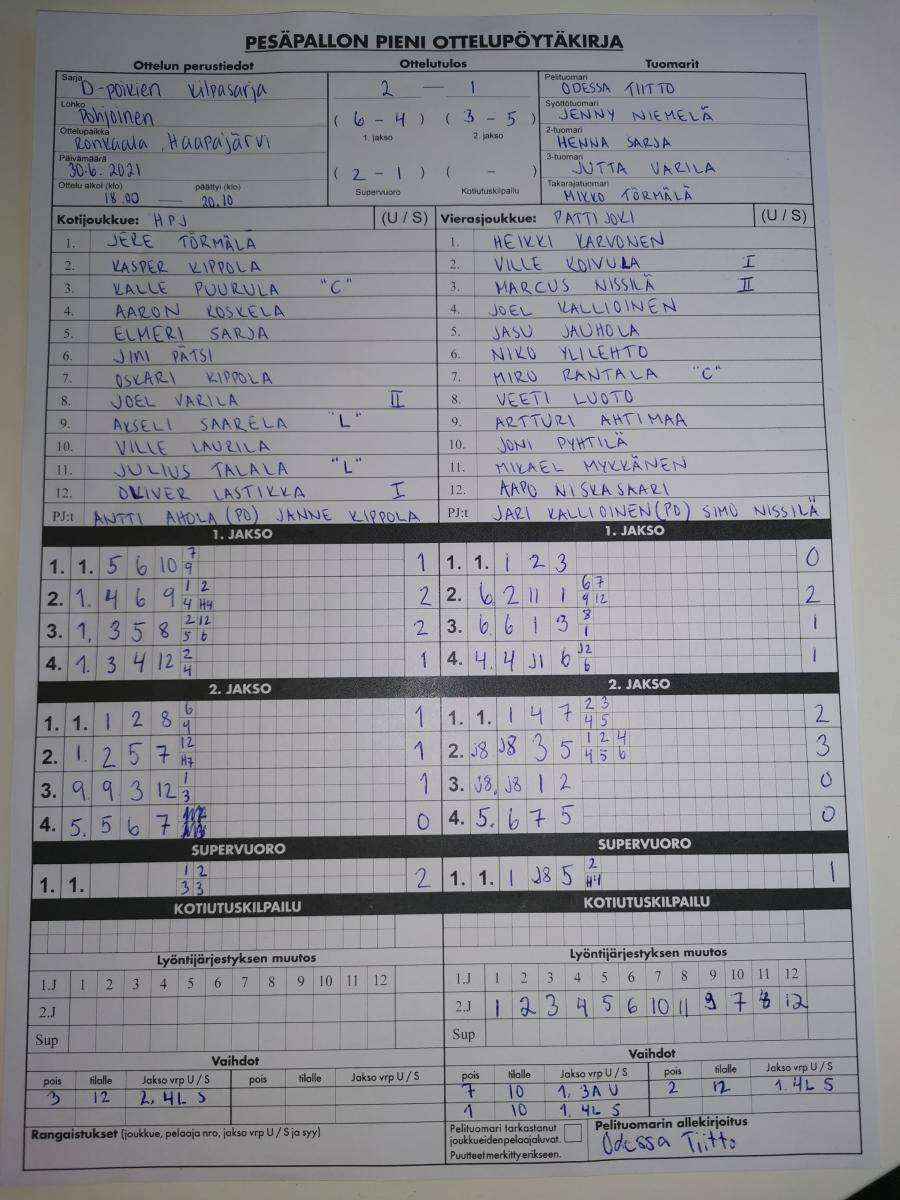 PESÄPALLON PIENI OTTELUPÖYTÄKIRJA
Ottelun perustiedot Ottelutulos Tuomarit
Sarja D-poikien kilpasarja
Lohko Pohjoinen
Ottelupaikka Ronkaala, Haapajärvi
Päivämäärä 30.6. 2021
Ottelu alkoi (klo) 18.00 — päättyi (klo) 20.10
2 — 1
( 6 - 4 ) ( 3 - 5 )
1. jakso 2. jakso
( 2 - 1 ) ( - )
Supervuoro Kotiutuskilpailu
Pelituomari ODESSA TIITTO
Syöttötuomari JENNY NIEMELÄ
2-tuomari HENNA SARJA
3-tuomari JUTTA VARILA
Takarajatuomari MIKKO TÖRMÄLÄ
Kotijoukkue: HPJ (U / S)
1. JERE TÖRMÄLÄ
2. KASPER KIPPOLA
3. KALLE PUURULA "C"
4. AARON KOSKELA
5. ELMERI SARJA
6. JIMI PÄTSI
7. OSKARI KIPPOLA
8. JOEL VARILA II
9. AKSELI SAARELA "L"
10. VILLE LAURILA
11. JULIUS TALALA "L"
12. OLIVER LASTIKKA I
PJ:t ANTTI AHOLA (PO) JANNE KIPPOLA
Vierasjoukkue: PATTIJOKI (U / S)
1. HEIKKI KARVONEN
2. VILLE KOIVULA I
3. MARCUS NISSILÄ II
4. JOEL KALLIOINEN
5. JASU JAUHOLA
6. NIKO YLILEHTO
7. MIRO RANTALA "C"
8. VEETI LUOTO
9. ARTTURI AHTIMAA
10. JONI PYHTILÄ
11. MIKAEL MYKKÄNEN
12. AAPO NISKASAARI
PJ:t JARI KALLIOINEN (PO) SIMO NISSILÄ
1. JAKSO
1. 1. 5 6 10 7 9 1
2. 1. 4 6 9 1 2 4 H4 2
3. 1. 3 5 8 2 12 5 6 2
4. 1. 3 4 12 2 4 1
1. JAKSO
1. 1. 1 2 3 0
2. 6. 2 11 1 6 7 9 12 2
3. 6. 6 1 3 8 1 1
4. 4. 4 J1 6 J2 6 1
2. JAKSO
1. 1. 1 2 8 6 9 1
2. 1. 2 5 7 12 H7 1
3. 9. 9 3 12 1 3 1
4. 5. 5 6 7 0
2. JAKSO
1. 1. 1 4 7 2 3 4 5 2
2. J8 J8 3 5 1 2 4 4 5 6 3
3. J8. J8 1 2 0
4. 5. 6 7 5 0
SUPERVUORO
1. 1. 1 2 3 3 2
SUPERVUORO
1. 1. 1 J8 5 2 H4 1
KOTIUTUSKILPAILU
KOTIUTUSKILPAILU
Lyöntijärjestyksen muutos
1.J 1 2 3 4 5 6 7 8 9 10 11 12
2.J
Sup
Lyöntijärjestyksen muutos
1.J 1 2 3 4 5 6 7 8 9 10 11 12
2.J 1 2 3 4 5 6 10 11 9 7 8 12
Sup
Vaihdot
pois tilalle Jakso vrp U / S pois tilalle Jakso vrp U / S
3 12 2. 4L S
Vaihdot
pois tilalle Jakso vrp U / S pois tilalle Jakso vrp U / S
7 10 1. 3A U 2 12 1. 4L S
1 10 1. 4L S
Rangaistukset (joukkue, pelaaja nro, jakso vrp U / S ja syy)
Pelituomari tarkastanut
joukkueiden pelaajaluvat.
Puutteet merkitty erikseen.
Pelituomarin allekirjoitus
Odessa Tiitto